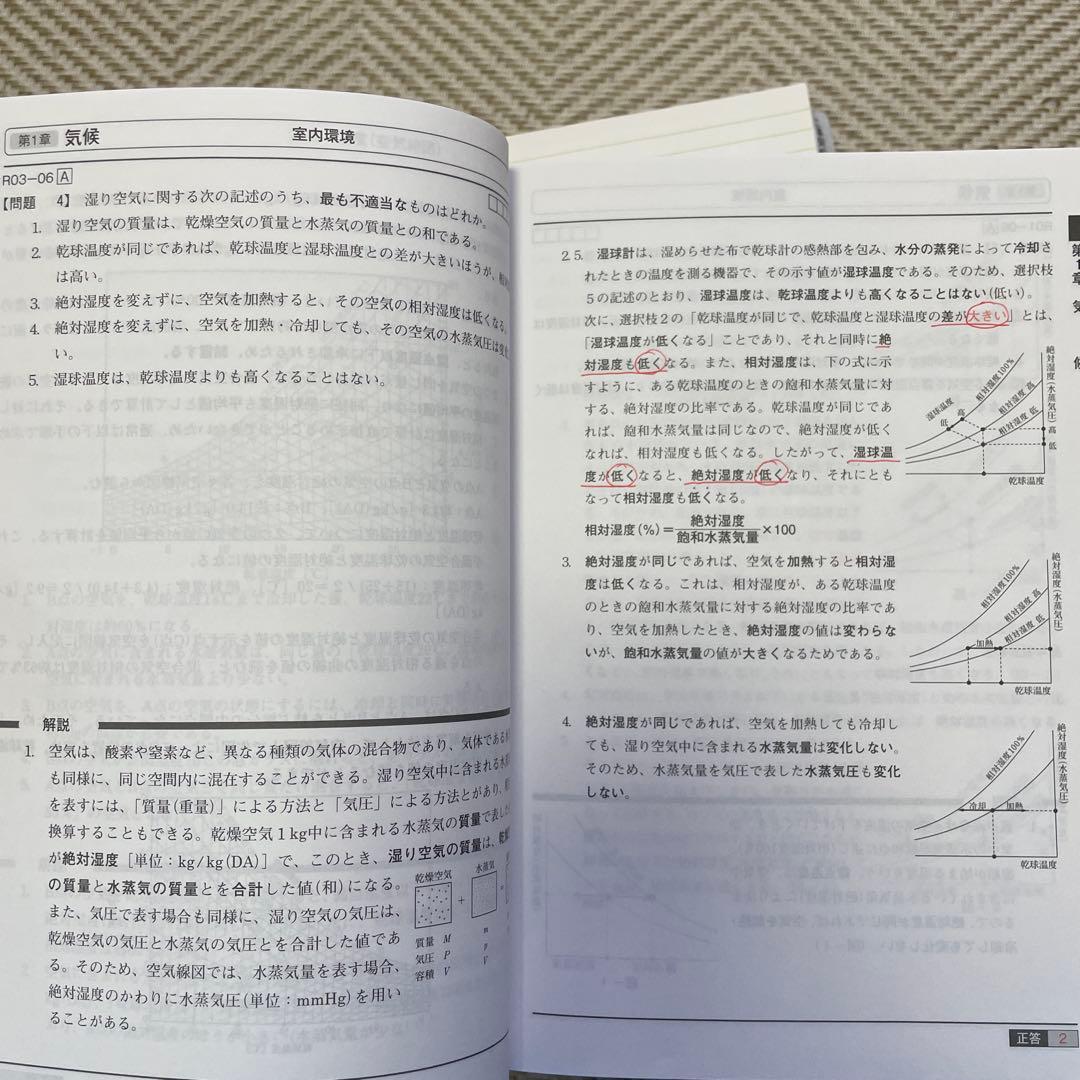 第1章 気候 室内環境
R03-06 A
【問題 4】 湿り空気に関する次の記述のうち、最も不適当なものはどれか。
1. 湿り空気の質量は、乾燥空気の質量と水蒸気の質量との和である。
2. 乾球温度が同じであれば、乾球温度と湿球温度との差が大きいほうが、
は高い。
3. 絶対湿度を変えずに、空気を加熱すると、その空気の相対湿度は低くなる。
4. 絶対湿度を変えずに、空気を加熱・冷却しても、その空気の水蒸気圧は変化
い。
5. 湿球温度は、乾球温度よりも高くなることはない。
解説
1. 空気は、酸素や窒素など、異なる種類の気体の混合物であり、気体である
も同様に、同じ空間内に混在することができる。湿り空気中に含まれる
を表すには、「質量(重量)」による方法と「気圧」による方法とがあり、
換算することもできる。乾燥空気1kg中に含まれる水蒸気の質量で表した
が絶対湿度[単位:kg/kg(DA)]で、このとき、湿り空気の質量は、
の質量と水蒸気の質量とを合計した値(和)になる。
また、気圧で表す場合も同様に、湿り空気の気圧は、
乾燥空気の気圧と水蒸気の気圧とを合計した値であ
る。そのため、空気線図では、水蒸気量を表す場合、
絶対湿度のかわりに水蒸気圧(単位:mmHg)を用い
ることがある。
乾燥空気 水蒸気
+
質量 M m
気圧 P p
容積 V V
2.5. 湿球計は、湿らせた布で乾球計の感熱部を包み、水分の蒸発によって冷却さ
れたときの温度を測る機器で、その示す値が湿球温度である。そのため、選択枝
5の記述のとおり、湿球温度は、乾球温度よりも高くなることはない(低い)。
次に、選択枝2の「乾球温度が同じで、乾球温度と湿球温度の差が大きい」とは、
「湿球温度が低くなる」ことであり、それと同時に絶
対湿度も低くなる。また、相対湿度は、下の式に示
すように、ある乾球温度のときの飽和水蒸気量に対
する、絶対湿度の比率である。乾球温度が同じであ
れば、飽和水蒸気量は同じなので、絶対湿度が低く
なれば、相対湿度も低くなる。したがって、湿球温
度が低くなると、絶対湿度が低くなり、それにとも
なって相対湿度も低くなる。
相対湿度(%)=絶対湿度/飽和水蒸気量×100
湿球温度
高
低
相対湿度100%
相対湿度 高
相対湿度 低
絶対湿度(水蒸気圧)
高
低
乾球温度
3. 絶対湿度が同じであれば、空気を加熱すると相対湿
度は低くなる。これは、相対湿度が、ある乾球温度
のときの飽和水蒸気量に対する絶対湿度の比率であ
り、空気を加熱したとき、絶対湿度の値は変わらな
いが、飽和水蒸気量の値が大きくなるためである。
相対湿度100%
相対湿度 高
相対湿度 低
加熱
絶対湿度(水蒸気圧)
乾球温度
4. 絶対湿度が同じであれば、空気を加熱しても冷却し
ても、湿り空気中に含まれる水蒸気量は変化しない。
そのため、水蒸気量を気圧で表した水蒸気圧も変化
しない。
相対湿度100%
冷却 加熱
絶対湿度(水蒸気圧)
乾球温度
第1章 気候
正答 2